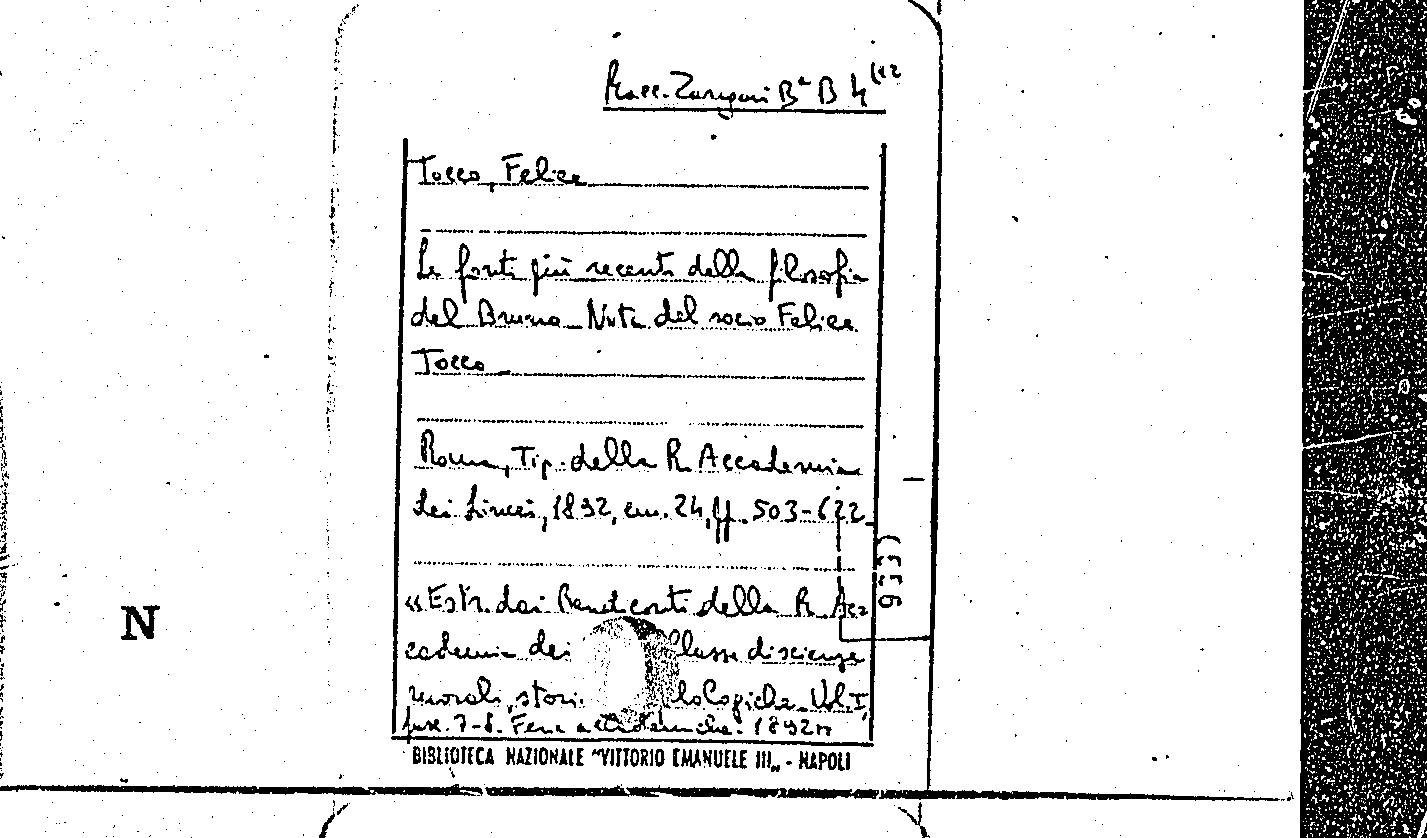 Racc. Zangari B² B 4
Tocco, Felice
Le fonti più recenti della filosofia
del Bruno. Nota del socio Felice
Tocco.
Roma, Tip. della R. Accademia
dei Lincei, 1892, cm. 24, pp. 503-622.
«Estr. dai Rendiconti della R. Ac=
cademia dei lasse di scienze
morali, stori. lologiche. Vol. I,
fasc. 7-8. Fena accademiche. 1892»
BIBLIOTECA NAZIONALE "VITTORIO EMANUELE III„ - NAPOLI
N